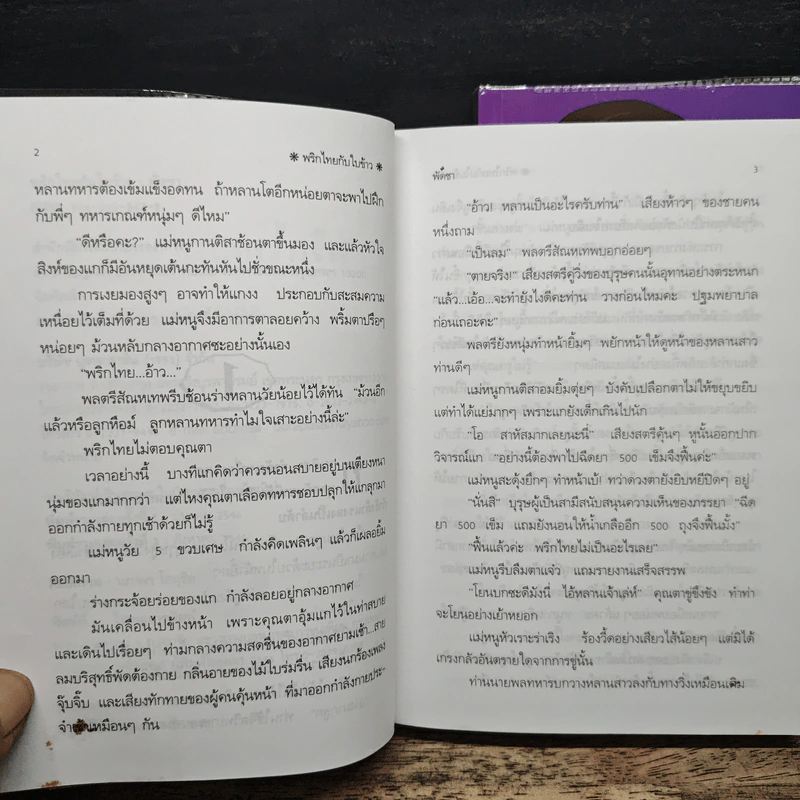 2
✳ พริกไทยกับใบข้าว ✳
หลานทหารต้องเข้มแข็งอดทน ถ้าหลานโตอีกหน่อยตาจะพาไปฝึก
กับพี่ๆ ทหารเกณฑ์หนุ่มๆ ดีไหม"
"ดีหรือคะ?" แม่หนูกานติสาช้อนตาขึ้นมอง และแล้วหัวใจ
สิงห์ของแกก็มีอันหยุดเต้นกะทันหันไปชั่วขณะหนึ่ง
การเงยมองสูงๆ อาจทำให้แกงง ประกอบกับสะสมความ
เหนื่อยไว้เต็มที่ด้วย แม่หนูจึงมีอาการตาลอยคว้าง พริ้มตาปรือๆ
หน่อยๆ ม้วนหลับกลางอากาศซะอย่างนั้นเอง
"พริกไทย...อ้าว..."
พลตรีสัณหเทพรีบช้อนร่างหลานวัยน้อยไว้ได้ทัน "ม้วนอีก
แล้วหรือลูกหือม์ ลูกหลานทหารทำไมใจเสาะอย่างนี้ล่ะ"
พริกไทยไม่ตอบคุณตา
เวลาอย่างนี้ บางทีแกคิดว่าควรนอนสบายอยู่บนเตียงหนา
นุ่มของแกมากกว่า แต่ไหงคุณตาเลือดทหารชอบปลุกให้แกลุกมา
ออกกำลังกายทุกเช้าด้วยก็ไม่รู้
แม่หนูวัย 5 ขวบเศษ กำลังคิดเพลินๆ แล้วก็เผลอยิ้ม
ออกมา
ร่างกระจ้อยร่อยของแก กำลังลอยอยู่กลางอากาศ
มันเคลื่อนไปข้างหน้า เพราะคุณตาอุ้มแกไว้ในท่าสบาย
และเดินไปเรื่อยๆ ท่ามกลางความสดชื่นของอากาศยามเช้า...สาย
ลมบริสุทธิ์พัดต้องกาย กลิ่นอายของไม้ใบร่มรื่น เสียงนกร้องเพลง
จุ๊บจิ๊บ และเสียงทักทายของผู้คนคุ้นหน้า ที่มาออกกำลังกายประ-
จำเหมือนๆ กัน
พัดชา
3
"อ้าว! หลานเป็นอะไรครับท่าน" เสียงห้าวๆ ของชายคน
หนึ่งถาม
"เป็นลม" พลตรีสัณหเทพบอกอ่อยๆ
"ตายจริง!" เสียงสตรีคู่วิ่งของบุรุษคนนั้นอุทานอย่างตระหนก
"แล้ว...เอ้อ...จะทำยังไงดีคะท่าน วางก่อนไหมคะ ปฐมพยาบาล
ก่อนเถอะคะ"
พลตรียังหนุ่มทำหน้ายิ้มๆ พยักหน้าให้ดูหน้าของหลานสาว
ท่านดีๆ
แม่หนูกานติสาอมยิ้มตุ่ยๆ บังคับเปลือกตาไม่ให้ขยุบขยิบ
แต่ทำได้แย่มากๆ เพราะแกยังเด็กเกินไปนัก
"โอ สาหัสมากเลยนะนี่" เสียงสตรีคุ้นๆ หูนั้นออกปาก
วิจารณ์แก "อย่างนี้ต้องพาไปฉีดยา 500 เข็มจึงฟื้นค่ะ"
แม่หนูสะดุ้งยึกๆ ทำหน้าเบ้! ทว่าดวงตายังยิบหยีปิดๆ อยู่
"นั่นสิ" บุรุษผู้เป็นสามีสนับสนุนความเห็นของภรรยา "ฉีด
ยา 500 เข็ม แถมยังนอนให้น้ำเกลืออีก 500 ถุงจึงฟื้นมั้ง"
"ฟื้นแล้วค่ะ พริกไทยไม่เป็นอะไรเลย"
แม่หนูรีบลืมตาแจ๋ว แถมรายงานเสร็จสรรพ
"โยนบกซะดีมังนี่ ไอ้หลานเจ้าเล่ห์" คุณตาขู่ขึงขัง ทำท่า
จะโยนอย่างเย้าหยอก
แม่หนูหัวเราะร่าเริง ร้องวี้ดอย่างเสียวไส้น้อยๆ แต่มิได้
เกรงกลัวอันตรายใดจากการขู่นั้น
ท่านนายพลทหารบกวางหลานสาวลงกับทางวิ่งเหมือนเดิม